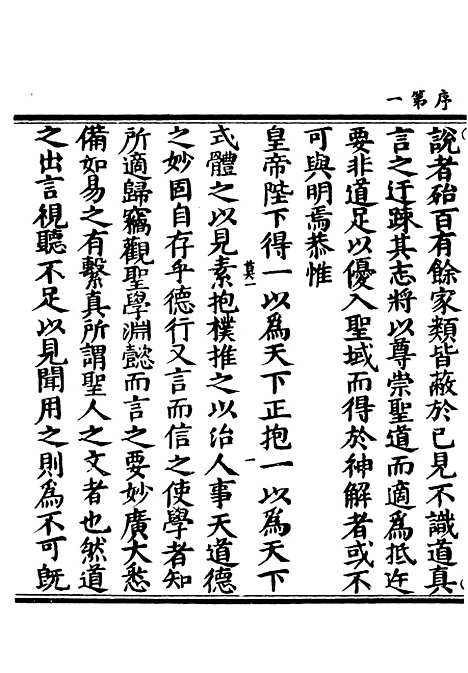 序第一
說者殆百有餘家類皆蔽於己見不識道真
言之迂踈其志將以尊崇聖道而適爲抵迕
要非道足以優入聖域而得於神解者或不
可與明焉恭惟
皇帝陛下得一以爲天下正抱一以爲天下
式體之以見素抱樸推之以治人事天道德
之妙固自存乎德行又言而信之使學者知
所適歸竊觀聖學淵懿而言之要妙廣大悉
備如易之有繫真所謂聖人之文者也然道
之出言視聽不足以見聞用之則爲不可旣